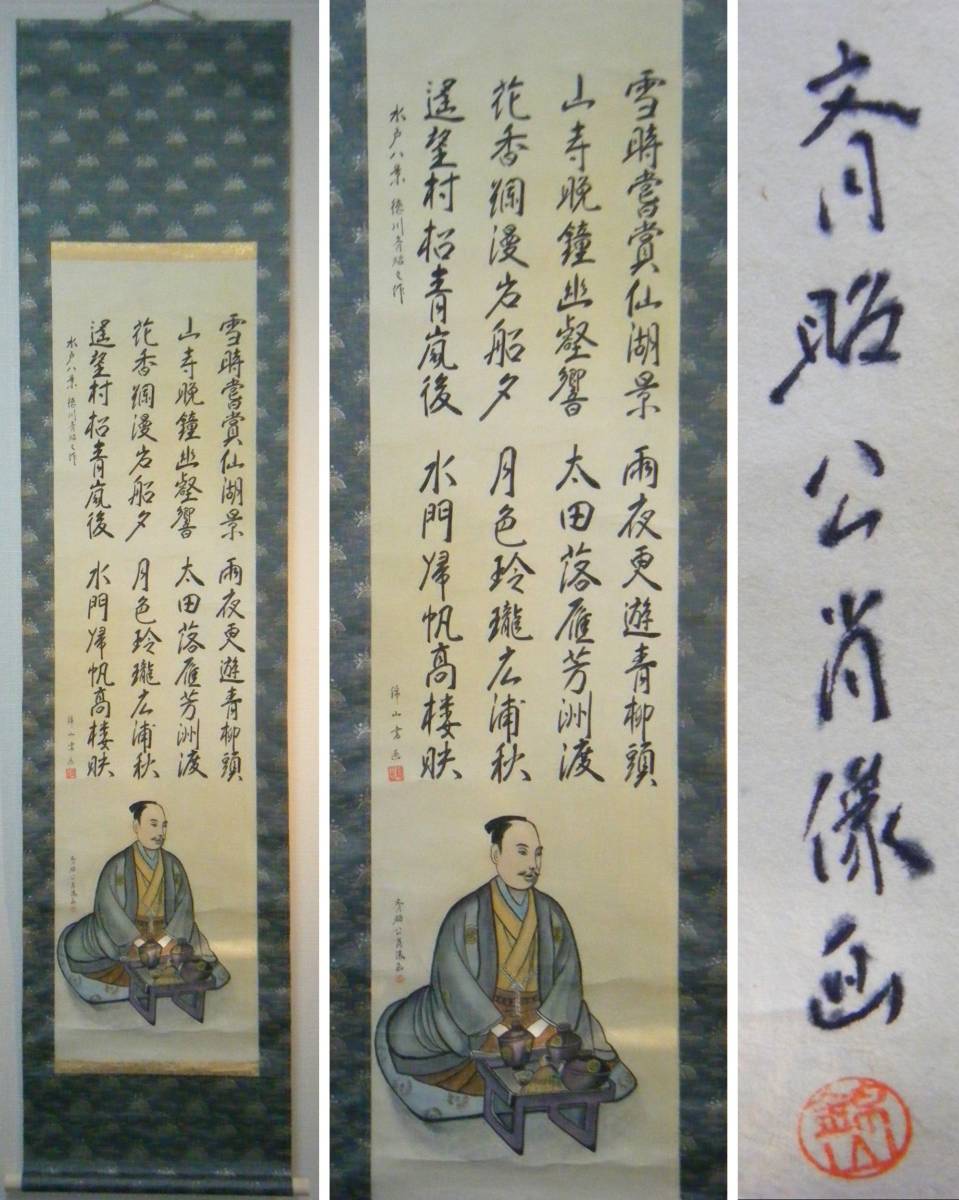 雪時嘗賞仙湖景 雨夜更遊青柳頭
山寺晩鐘幽壑響 太田落雁芳洲渡
花香爛漫岩船夕 月色玲瓏広浦秋
遙望村松青嵐後 水門帰帆高楼映
水戸八景 徳川斉昭之作
錦山書画
斉昭公肖像画
雪時嘗賞仙湖景 雨夜更遊青柳頭
山寺晩鐘幽壑響 太田落雁芳洲渡
花香爛漫岩船夕 月色玲瓏広浦秋
遙望村松青嵐後 水門帰帆高楼映
水戸八景 徳川斉昭之作
錦山書画
斉昭公肖像画
斉昭公肖像画
錦山